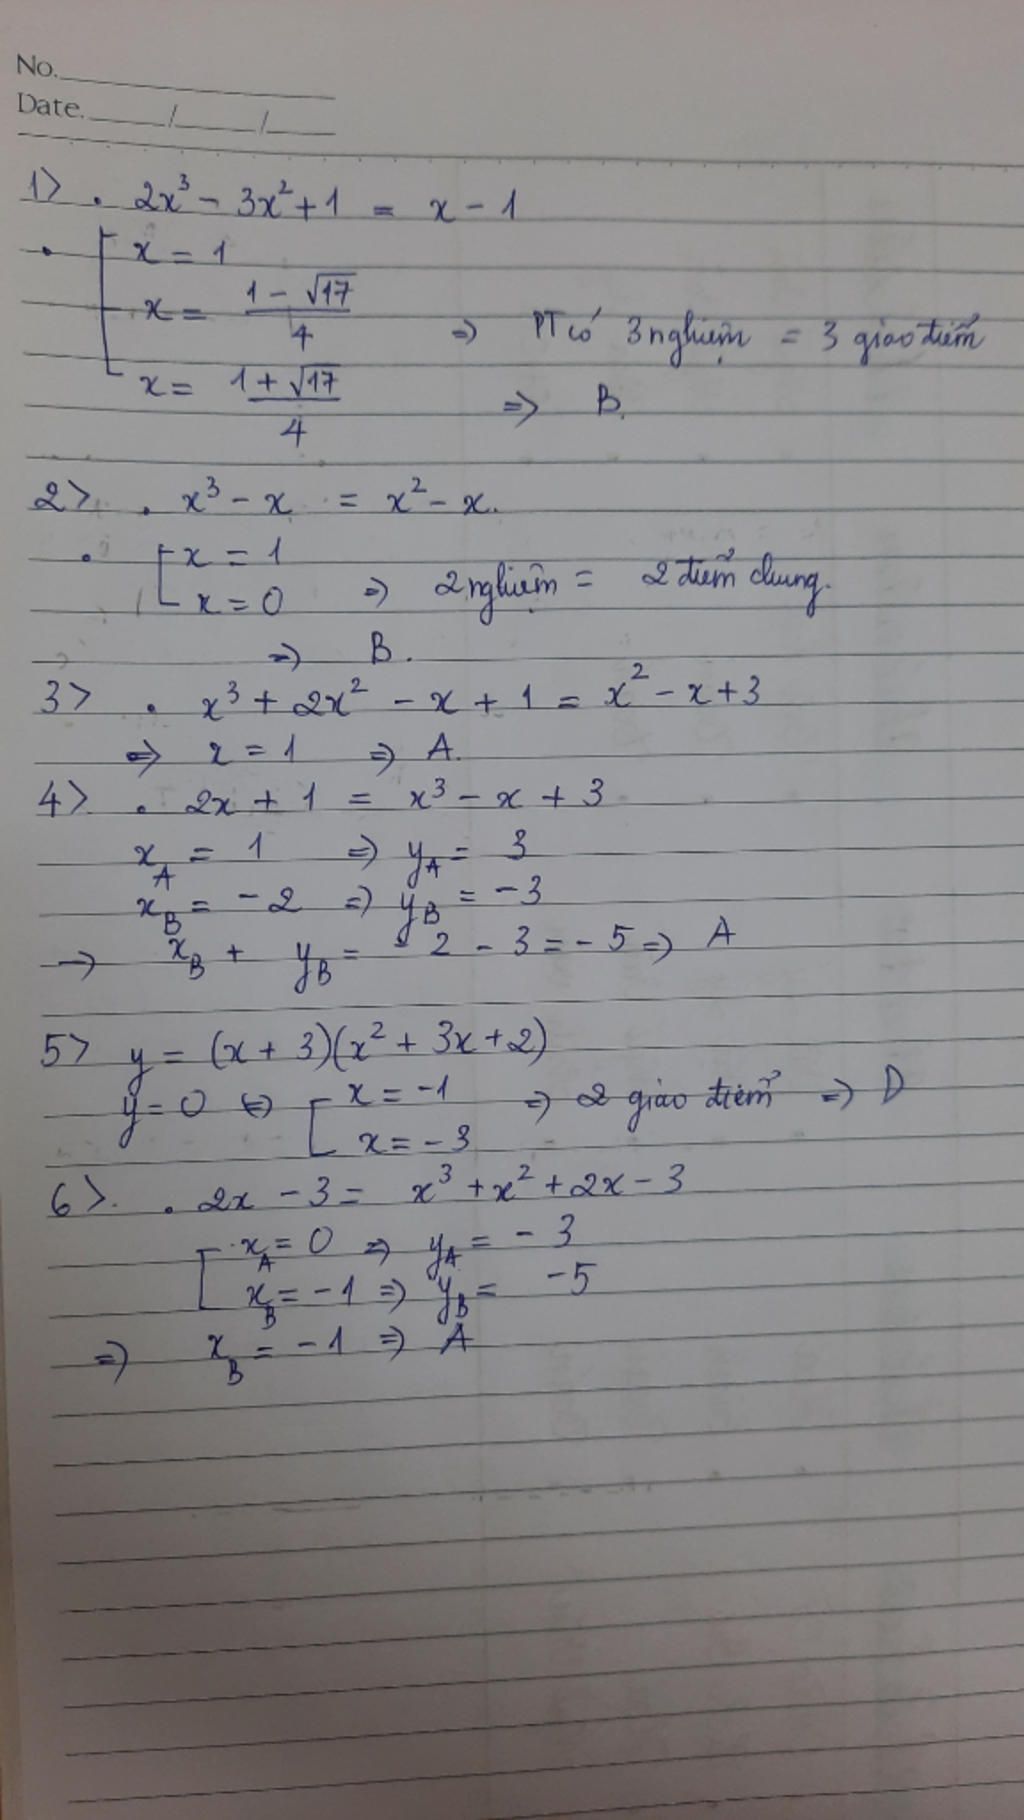 No.
Date. / /
1> . 2x³ - 3x² + 1 = x - 1
. [ x = 1
x = (1 - √17)/4 => PT có 3 nghiệm = 3 giao điểm
x = (1 + √17)/4 => B.
2> . x³ - x = x² - x.
. [ x = 1
x = 0 => 2 nghiệm = 2 điểm chung.
=> B.
3> . x³ + 2x² - x + 1 = x² - x + 3
=> x = 1 => A.
4> . 2x + 1 = x³ - x + 3
x_A = 1 => y_A = 3
x_B = -2 => y_B = -3
→ x_B + y_B = -2 - 3 = -5 => A
5> y = (x + 3)(x² + 3x + 2)
y = 0 <=> [ x = -1 => 2 giao điểm => D
x = -3
6>. . 2x - 3 = x³ + x² + 2x - 3
[ x_A = 0 => y_A = -3
x_B = -1 => y_B = -5
=> x_B = -1 => A